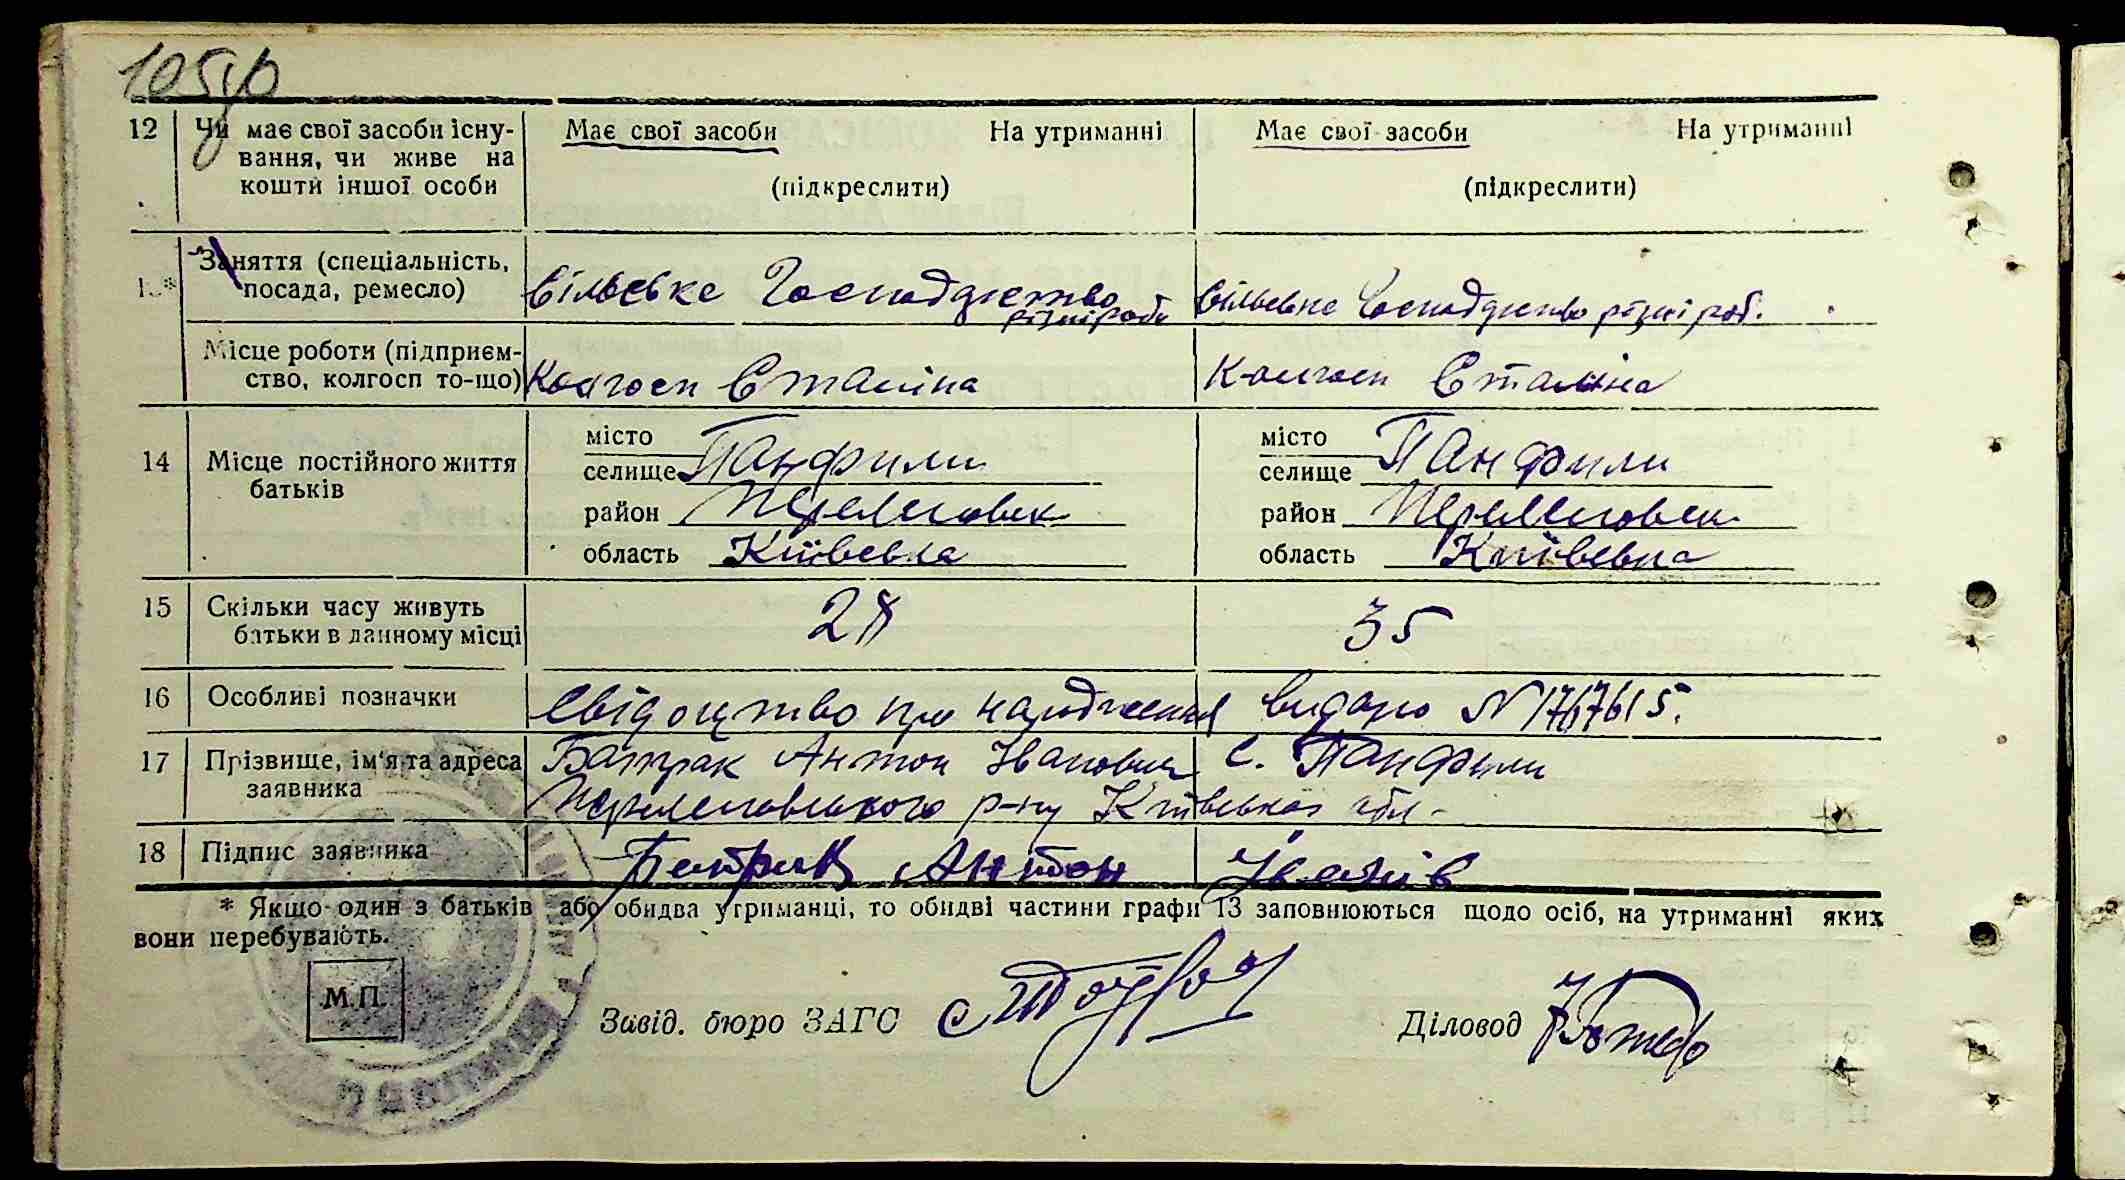 105
12 Чи має свої засоби існу- Має свої засоби На утриманні Має свої засоби На утриманні
вання, чи живе на
кошти іншої особи (підкреслити) (підкреслити)
Заняття (спеціальність,
посада, ремесло) Сільське Господарство різні роб. сільське Господарство різні роб.
Місце роботи (підприєм-
ство, колгосп то-що) Колгосп Сталіна Колгосп Сталіна
місто місто
14 Місце постійного життя селище Панфили селище Панфили
батьків район район
область Київська область Київська
15 Скільки часу живуть 28 35
батьки в данному місці
16 Особливі позначки Свідоцтво про народження видано N 1767615.
17 Прізвище, ім'я та адреса Батрак Антон Іванович с. Панфили
заявника р-ну Київської обл-
18 Підпис заявника Батрак Антон Іванів
* Якщо один з батьків або обидва утриманці, то обидві частини графи 13 заповнюються щодо осіб, на утриманні яких
вони перебувають.
М.П.
Завід. бюро ЗАГС Діловод